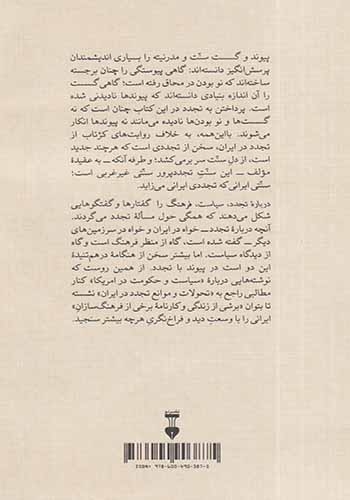 پیوند و گسست سنّت و مدرنیته را بسیاری اندیشمندان
پرسش‌انگیز دانسته‌اند: گاهی پیوستگی را چنان برجسته
ساخته‌اند که نو بودن در محاق رفته است؛ گاهی گسست
را آن اندازه بنیادی دانسته‌اند که پیوندها نادیدنی شده
است. پرداختن به تجدد در این کتاب چنان است که نه
گسست‌ها و نو بودن‌ها نادیده می‌مانند نه پیوندها انکار
می‌شوند. بااین‌همه، به خلاف روایت‌های کژتاب از
تجدد در ایران، سخن از تجددی است که هرچند جدید
است، از دلِ سنّت سر برمی‌کشد؛ و طرفه آنکه ــ به عقیدهٔ
مؤلف ــ این سنّتِ تجددپرور سنّتی غیرغربی است:
سنّتی ایرانی که تجددی ایرانی می‌زاید.
دربارهٔ تجدد، سیاست، فرهنگ را گفتارها و گفتگوهایی
شکل می‌دهند که همگی حول مسألهٔ تجدد می‌گردند.
آنچه دربارهٔ تجدد ــ خواه در ایران و خواه در سرزمین‌های
دیگر ــ گفته شده، گاه از منظر فرهنگ است و گاه
از دیدگاه سیاست. اما بیشتر سخن از هنگامهٔ درهم‌تنیدهٔ
این دو است در پیوند با تجدد. از همین روست که
نوشته‌هایی دربارهٔ «سیاست و حکومت در امریکا» کنار
مطالبی راجع به «تحولات و موانع تجدد در ایران» نشسته
تا بتوان «برشی از زندگی و کارنامهٔ برخی از فرهنگ‌سازان»
ایرانی را با وسعتِ دید و فراخ‌نگریِ هرچه بیشتر سنجید.
نشر نو
ISBN: 978-600-490-387-5